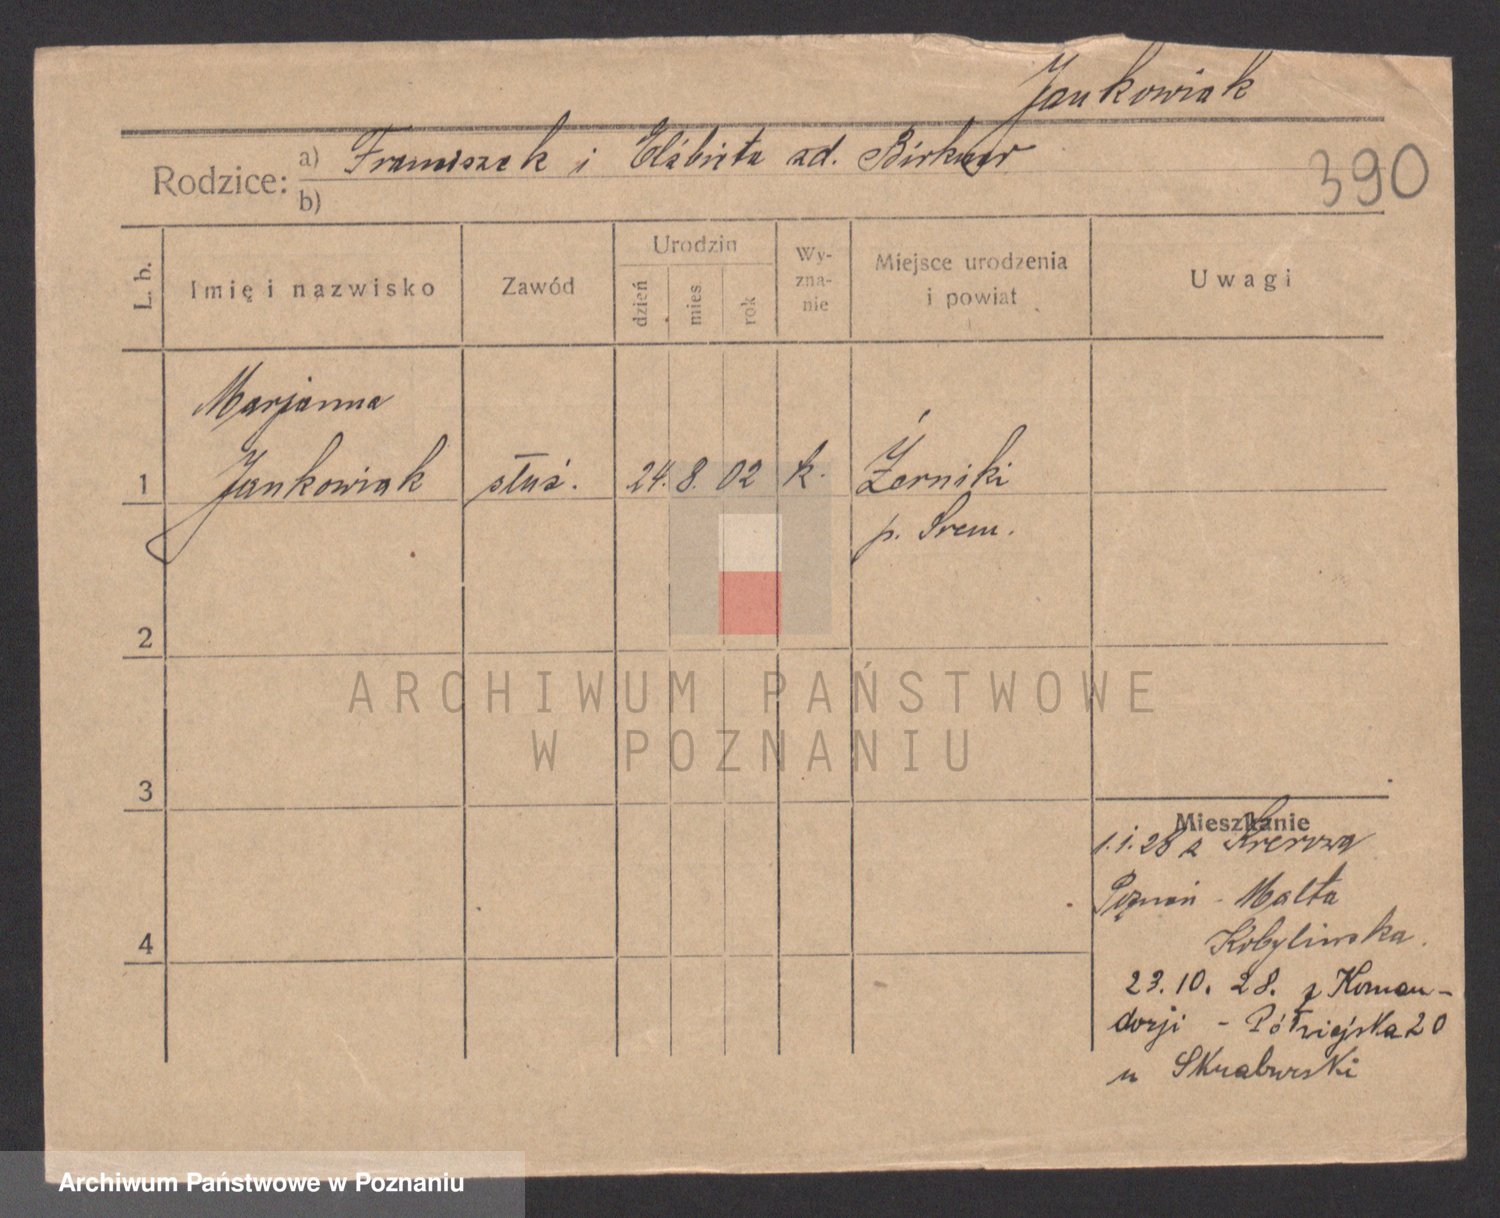 Jankowiak
390
Rodzice: a) Franciszek i Elżbieta zd. Birkner
b)
L. b.
Imię i nazwisko
Zawód
Urodzin
dzień
mies.
rok
Wy-
zna-
nie
Miejsce urodzenia
i powiat
Uwagi
Marjanna
1 Jankowiak służ. 24. 8. 02 k. Żerniki
p. Śrem.
2
3
4
Mieszkanie
1.1.28 z Krerowa
Poznań - Malta
Kobylinska.
23.10.28. z Koman-
dorji - Półwiejska 20
u Skraburski
ARCHIWUM PAŃSTWOWE
W POZNANIU
Archiwum Państwowe w Poznaniu